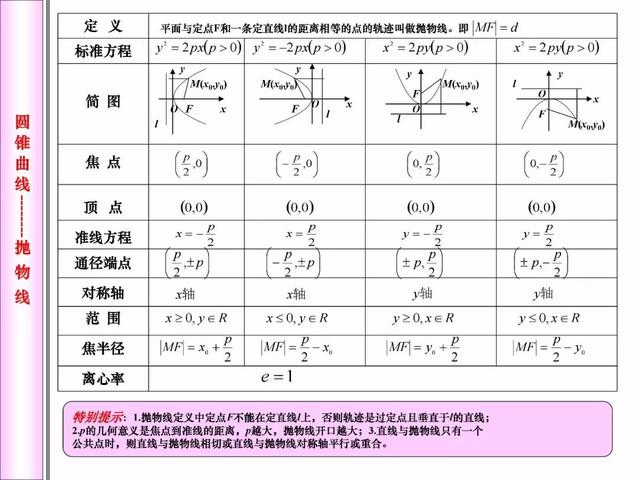 圆锥曲线------抛物线
定 义 平面与定点F和一条定直线l的距离相等的点的轨迹叫做抛物线。即 |MF| = d
标准方程 y² = 2px(p > 0) y² = -2px(p > 0) x² = 2py(p > 0) x² = 2py(p > 0)
简 图
y M(x₀,y₀) O F x l
y M(x₀,y₀) F O x l
y M(x₀,y₀) F O x l
y l O x F M(x₀,y₀)
焦 点 (p/2,0) (-p/2,0) (0,p/2) (0,-p/2)
顶 点 (0,0) (0,0) (0,0) (0,0)
准线方程 x = -p/2 x = p/2 y = -p/2 y = p/2
通径端点 (p/2,±p) (-p/2,±p) (±p,p/2) (±p,-p/2)
对称轴 x轴 x轴 y轴 y轴
范 围 x ≥ 0, y ∈ R x ≤ 0, y ∈ R y ≥ 0, x ∈ R y ≤ 0, x ∈ R
焦半径 |MF| = x₀ + p/2 |MF| = p/2 - x₀ |MF| = y₀ + p/2 |MF| = p/2 - y₀
离心率 e = 1
特别提示：1.抛物线定义中定点F不能在定直线l上，否则轨迹是过定点且垂直于l的直线；
2.p的几何意义是焦点到准线的距离，p越大，抛物线开口越大；3.直线与抛物线只有一个
公共点时，则直线与抛物线相切或直线与抛物线对称轴平行或重合。